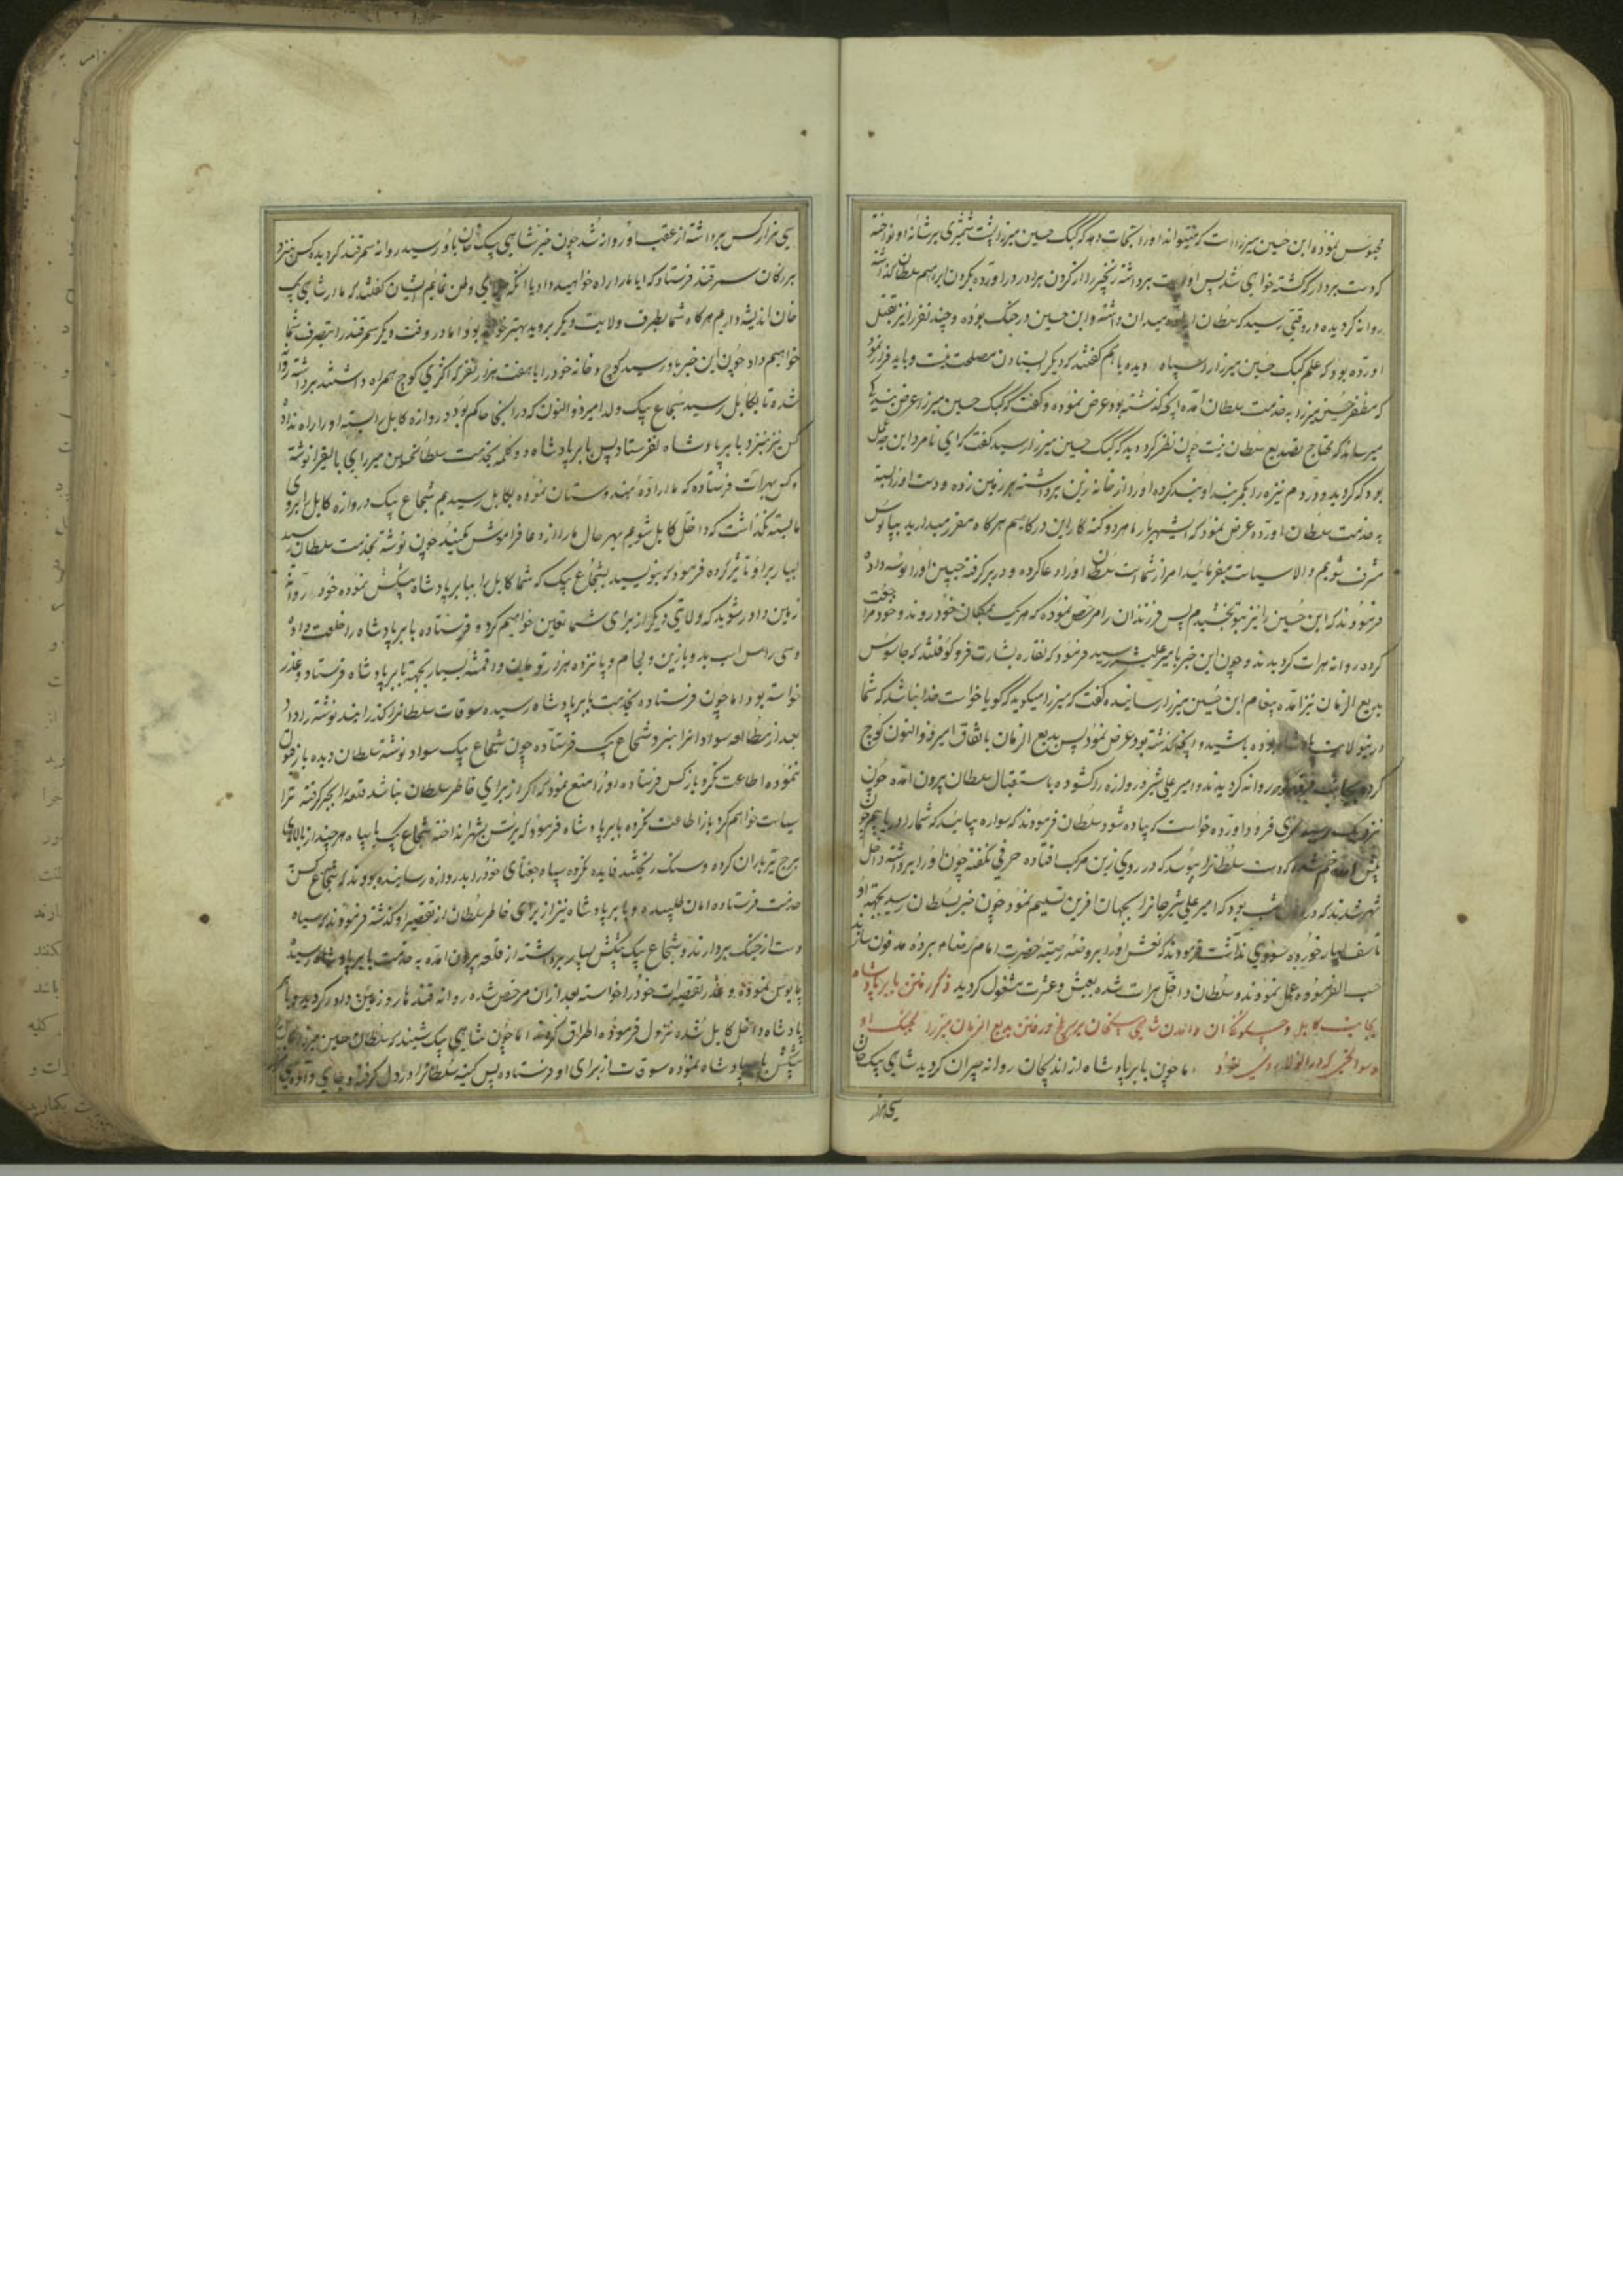 محبوس نموده ابن حسین میرزاست که میتواند او را نجات دهد که کپک حسین میرزا پشت شمشیری بر شانه او نواخته
که دست بردار که کشته خواهی شد پس او دست برداشته زنجیر را از کردن برادر در اورده بکردن ابراهیم سلطان کذاشته
روانه کردیده در وقتی رسید که سلطان اراده میدان داشته و ابن حسین در جنک بوده و چند نفر را نیز بقتل
اورده بود که علم کپک حسین میرزا و سپاه دیده با هم کفتند که دیکر ایستادن مصلحت نیست و باید فرار نمود
که مظفر حسین میرزا به خدمت سلطان امده انچه کذشته بود عرض نموده و کفت که کپک حسین میرزا عرض
میرساند که محتاج تصدیع سلطان نیست چون نظر کرد دید که کپک حسین میرزا رسید کفت که ای نامرد این چه عمل
بود که کردید و در دم نیزه را بکمربند او بند کرده او را از خانه زین برداشته بر زمین زده و دست او را بسته
به خدمت سلطان اورده عرض نمود که ای شهریار ما هر دو کنه کار این درکاهیم هرکاه مقرر میدارید بپابوس
مشرف شویم و الا سیاست میفرمائید امر از شماست سلطان او را دعا کرده و در بر کرفته جبین او را بوسه داده
فرمودند که ابن حسین را نیز بتو بخشیدم پس فرزندان را مرخص نموده که هر یک بمکان خود روند و خود مراجعت
کرده روانه هرات کردیدند و چون این خبر بامیر علیشیر رسید فرمود که نقاره بشارت فرو کوفتند که جاسوس
بدیع الزمان نیز امده پیغام ابن حسین میرزا رسانیده کفت که میرزا میکوید که کویا خواست خدا نباشد که شما
درین ولایت پادشاه بوده باشید و انچه کذشته بود عرض نمود پس بدیع الزمان باتفاق امیر ذوالنون کوچ
کرده بجانب قندهار روانه کردیدند و امیر علی شیر دروازه را کشوده باستقبال سلطان بیرون امده چون
نزدیک رسید سری فرود اورده خواست که پیاده شود سلطان فرمودند که سواره بیائید که شما را دریابیم چون
پیش امده خم شد که دست سلطانرا ببوسد که در روی زین مرکب افتاده حرفی نکفته چون او را برداشته داخل
شهر شدند که در همان شب بود که امیر علی شیر جانرا بجهان افرین تسلیم نمود چون خبر بسلطان رسید بجهة او
تاسف بسیار خورده سودی نداشت فرمودند که نعش او را بروضه رضیه حضرت امام رضا ع برده مدفون سازند
حسب الفرموده عمل نمودند و سلطان داخل هرات شده بعیش و عشرت مشغول کردید ذکر رفتن بابر پادشاه
بجانب کابل و چکونکی ان و امدن شاهی بیکخان بر سر بلخ و رفتن بدیع الزمان میرزا بجنک او
و سوانحی که در انولا روی نمود اما چون بابر پادشاه از اندیجان روانه حیران کردید شاهی بیک خان
سی هزار
سی هزار کس برداشته از عقب او روانه شد چون خبر شاهی بیک خان باو رسید روانه سمرقند کردیده کس بنزد
بزرکان سمرقند فرستاد که ایا ما را راه خواهید داد یا انکه جای وطن نمایم ایشان کفتند که ما از شاهی بیک
خان اندیشه داریم هرکاه شما بطرف ولایت دیکر بروید بهتر خواهد بود اما در وقت دیکر سمرقند را بتصرف شما
خواهیم داد چون این خبر باو رسید کوچ و خانه خود را با هفت هزار نفر که اکثری کوچ همراه داشتند برداشته روانه
شده تا بکابل رسید شجاع بیک ولد امیر ذوالنون که در انجا حاکم بود دروازه کابل را بسته او را راه نداد
کس نیز بنزد بابر پادشاه نفرستاد پس بابر پادشاه دو کلمه بخدمت سلطانحسین میرزای بایقرا نوشته
و کس بهرات فرستاده که ما اراده هندوستان نموده بکابل رسیدیم شجاع بیک دروازه کابل را بر روی
ما بسته نکذاشت که داخل کابل شویم بهر حال ما را از دعا فراموش نکنید چون نوشته بخدمت سلطان رسید
بسیار بر او تاثیر کرده فرمود که بنویسید بشجاع بیک که شما کابل را ببابر پادشاه پیشکش نموده خود روانه
زمین داور شوید که ولایتی دیکر از برای شما تعین خواهیم کرد و فرستاده بابر پادشاه را خلعت داده
و سی راس اسب بدو با زین و لجام و پانزده هزار تومان و اقمشه بسیار بجهة بابر پادشاه فرستاد و عذر
خواسته بود اما چون فرستاده بخدمت بابر پادشاه رسیده سوقات سلطانرا کذرانید نوشته را داد
بعد از مطالعه سواد انرا بنزد شجاع بیک فرستاده چون شجاع بیک سواد نوشته سلطان دیده باز قبول
ننموده اطاعت نکرد باز کس فرستاده او را منع نمود که اکر از برای خاطر سلطان نباشد قلعه را بجبر کرفته ترا
سیاست خواهم کرد باز اطاعت نکرده بابر پادشاه فرمود که یورش بشهر انداخته شجاع بیک با سپاه هرچند از بالای
برج تیرباران کرده و سنک ریختند فایده نکرده سپاه جغتای خود را بدروازه رسانیده بودند که شجاع کس
خدمت فرستاده امان طلبیده و بابر پادشاه نیز از برای خاطر سلطان از تقصیر او کذشته فرمودند که سپاه
دست از جنک بردارند و شجاع بیک پیشکش بسیار برداشته از قلعه بیرون امده به خدمت بابر پادشاه رسیده
پابوس نموده و عذر تقصیرات خود را خواسته بعد از ان مرخص شده روانه قندهار و زمین داور کردید و بابر
پادشاه داخل کابل شده نزول فرموده اطراق کردند اما چون شاهی بیک شنید که سلطان حسین میرزا کابل را
پیشکش بابر پادشاه نموده سوقات از برای او فرستاده پس کینه سلطانرا در دل کرفته